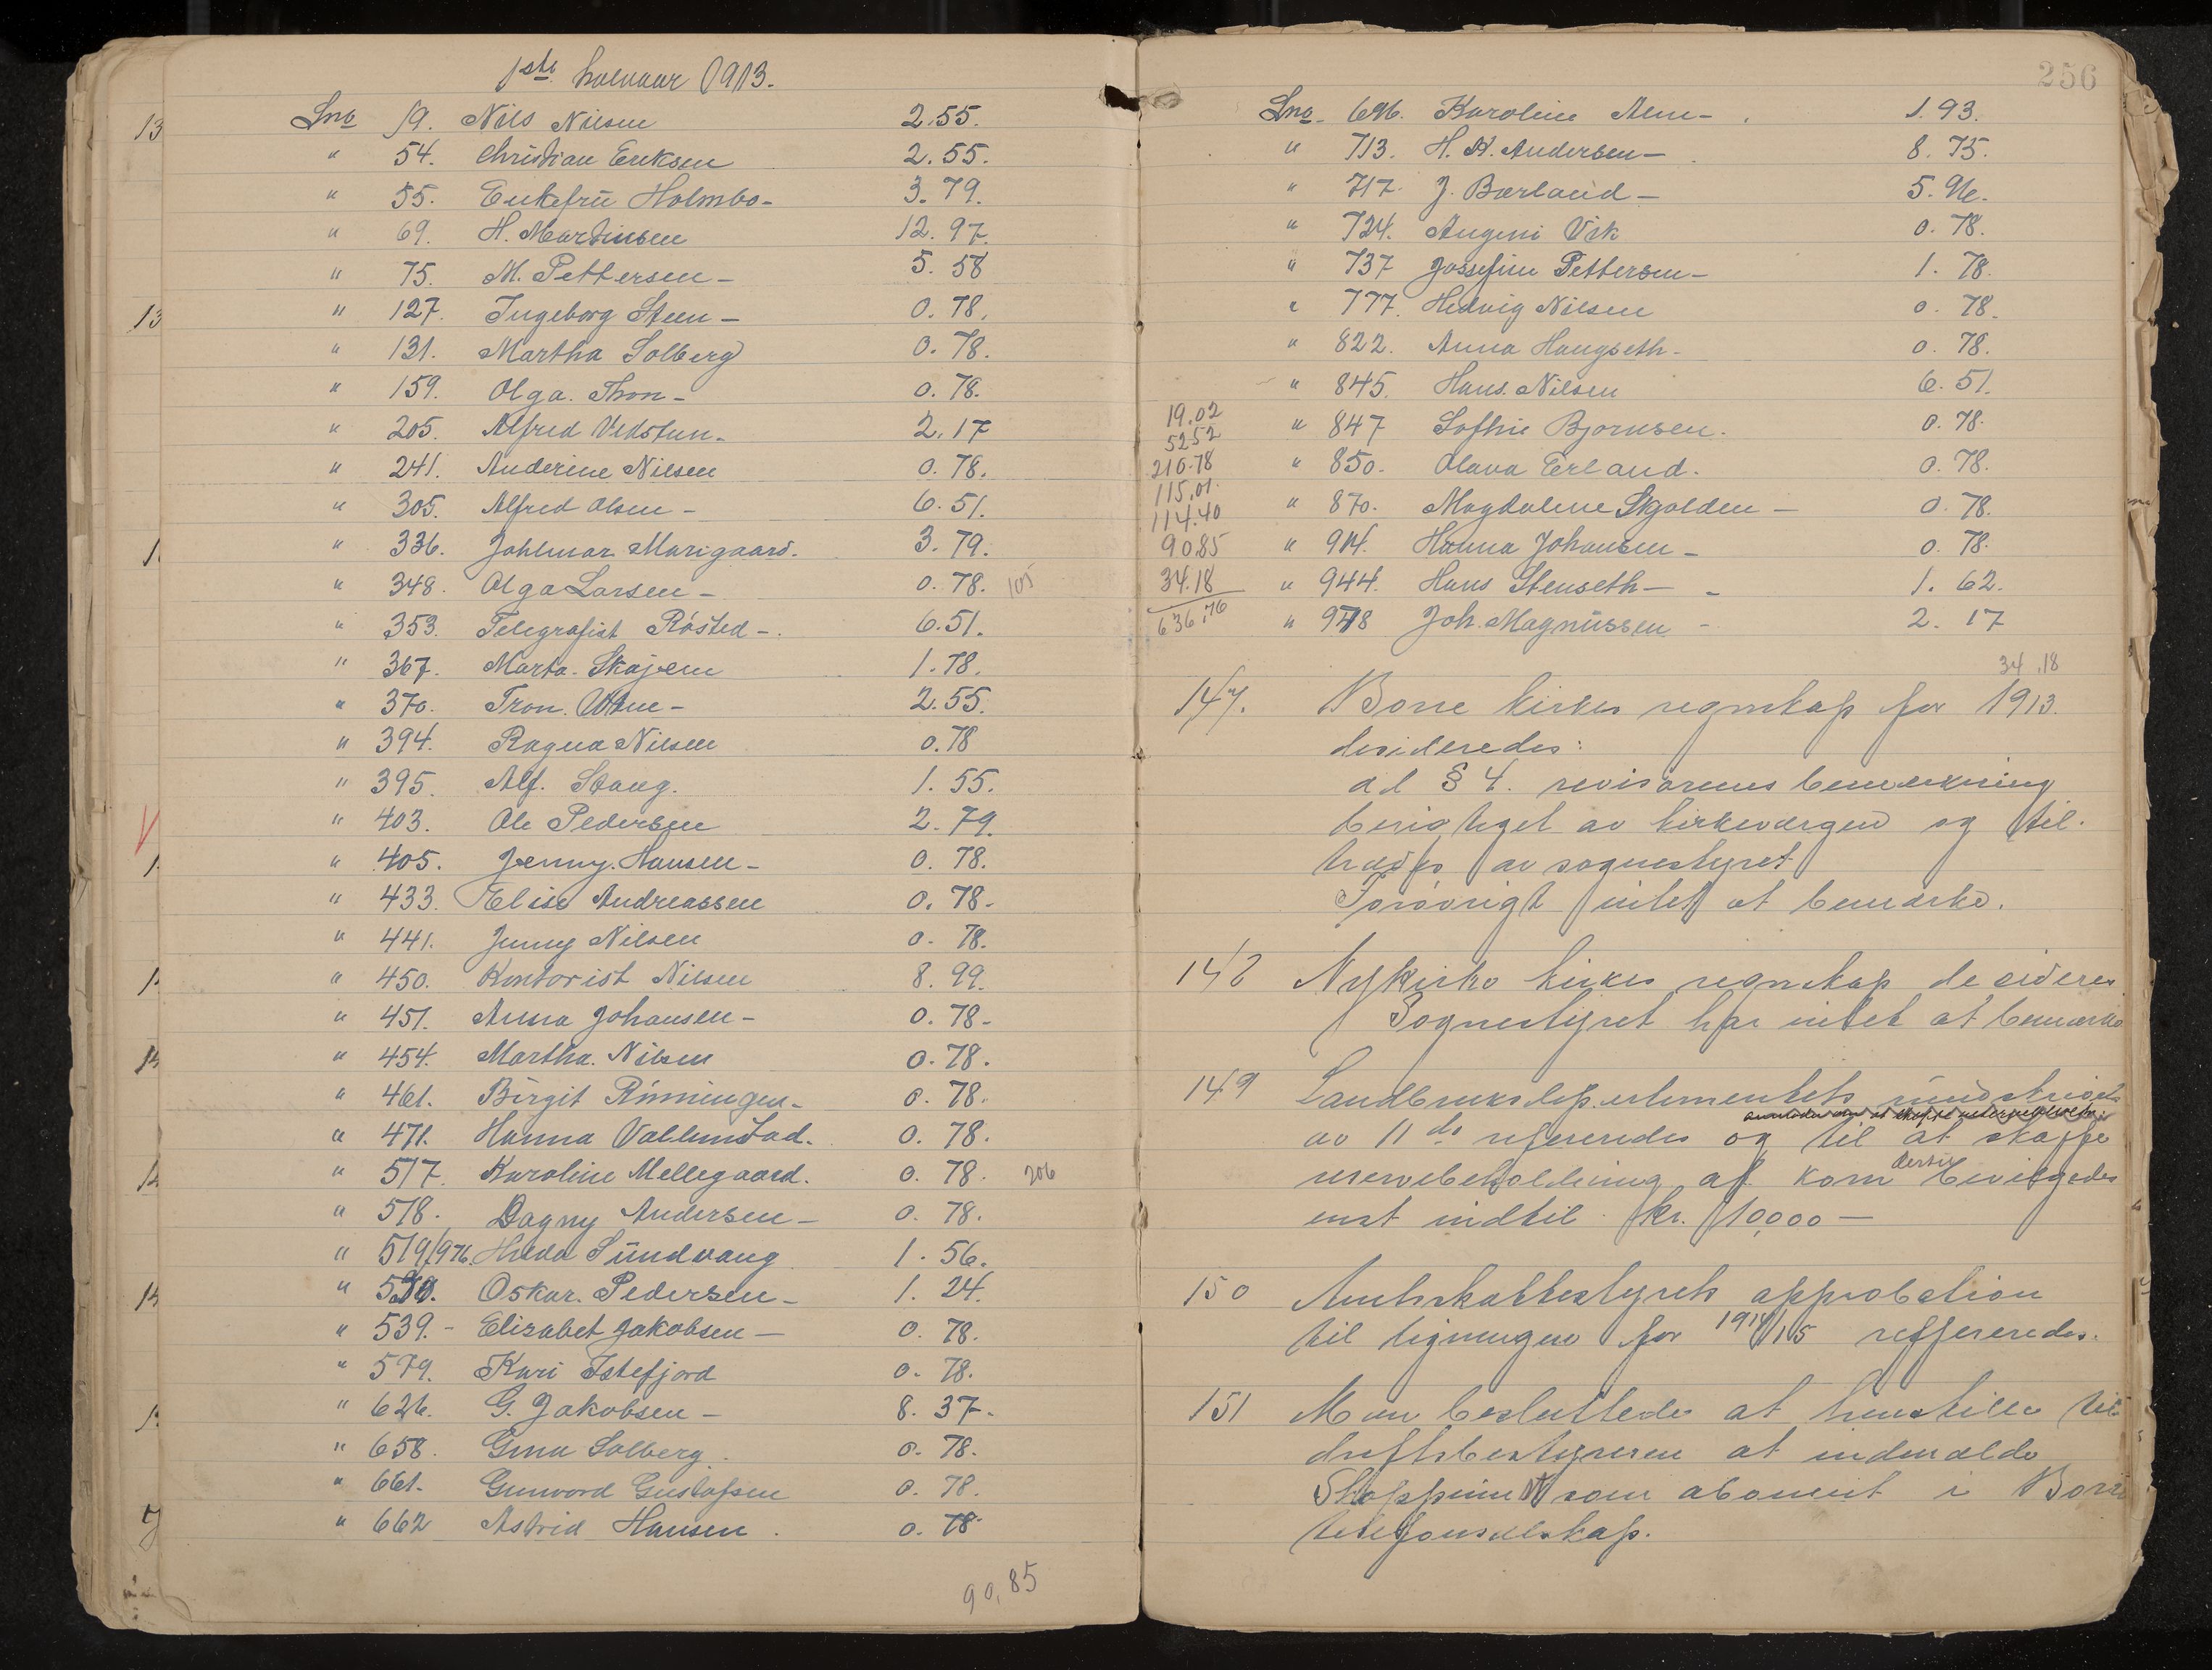 1ste halvaar 1913.
Lno 19. Nils Nilsen 2.55.
" 54. Christian Eriksen 2.55.
" 55. Enkefru Holmbo- 3.79.
" 69. H. Martinsen 12.97.
" 75. M. Pettersen - 5.58
" 127. Ingeborg Steen - 0.78.
" 131. Martha Solberg 0.78.
" 159. Olga. Thon - 0.78.
" 205. Alfred Vedstun. 2.17
" 241. Anderine Nilsen 0.78.
" 305. Alfred Olsen - 6.51.
" 336. Johlmar Marigaard. 3.79.
" 348. Olga Larsen - 0.78. 105
" 353. Telegrafist Røsted -. 6.51.
" 367. Marta. Skajem 1.78.
" 370. Tron. - 2.55.
" 394. Ragna Nilsen 0.78
" 395. Alf. Stang. 1.55.
" 403. Ole Pedersen 2.79.
" 405. Jenny. Hansen - 0.78.
" 433. Elise Andreassen 0.78-
" 441. Jenny Nilsen 0-78.
" 450. Kontorist Nilsen 8.99.
" 451. Anna Johansen - 0.78-
" 454. Martha. Nilsen 0.78.
" 461. Birgit Rønningen - 0.78.
" 471. Hanna Vallumstad. 0.78.
" 517. Karoline Mellegaard. 0.78. 206
" 518. Dagny Andersen - 0.78.
" 519/976. Hilda Sundvang 1.56.
" Oskar. Pedersen - 1.24.
" 539.- Elisabet Jakobsen - 0.78.
" 579. Kari Istefjord 0.78.
" 626. G. Jakobsen - 8.37-
" 658. Gina Solberg. 0.78.
" 661. Gunvord Gustafsen 0.78.
" 662 Astrid Hansen. 0.78
90,85
256
Lno. 696. Karoline Alm - 1.93.
" 713. H. K. Andersen - 8.75.
" 717. J. Bærland - 5.96.
" 724. Augeni Vik 0.78.
" 737 Jossefine Pettersen - 1.78.
" 777. Hedvig Nilsen 0.78.
" 822. Anna Haugseth - 0.78.
" 845. Hans. Nilsen 6.51.
" 847 Sofhie Bjørnsen. 0.78.
" 850. Olava Erland. 0.78.
" 870. Magdalene Skjolden - 0.78.
" 914. Hanna Johansen - 0.78.
" 944. Hans Stenseth - 1.62.
" 948 Joh. Magnussen - 2.17
34,18
19.02
5252
210.78
115,01.
114.40
90.85
34.18
636,76
147. Borre kirkes regnskap for 1913.
desideredes:
ad § 4. revisorenes bemerkning
berigtiget av kirkeværgen og til-
trædes av sognestyret
Forøvrigt intet at bemærke.
148 Nykirke kirkes regnskap desideres
Sognestyret har intet at bemærke
149 Landbruksdepartementets rundskrivelse
av 11 ds refereredes og til at skaffe
reservebeholdning af korn dertil bevilgedes
enst indtil kr. 10,000 -
150 Amtsskattestyrets approbation
til ligningen for 1914/15 reffereredes.
151 Man besluttede at henstille til
driftsbestyreren at indmelde
som abonent i Borre
telefonselskap.